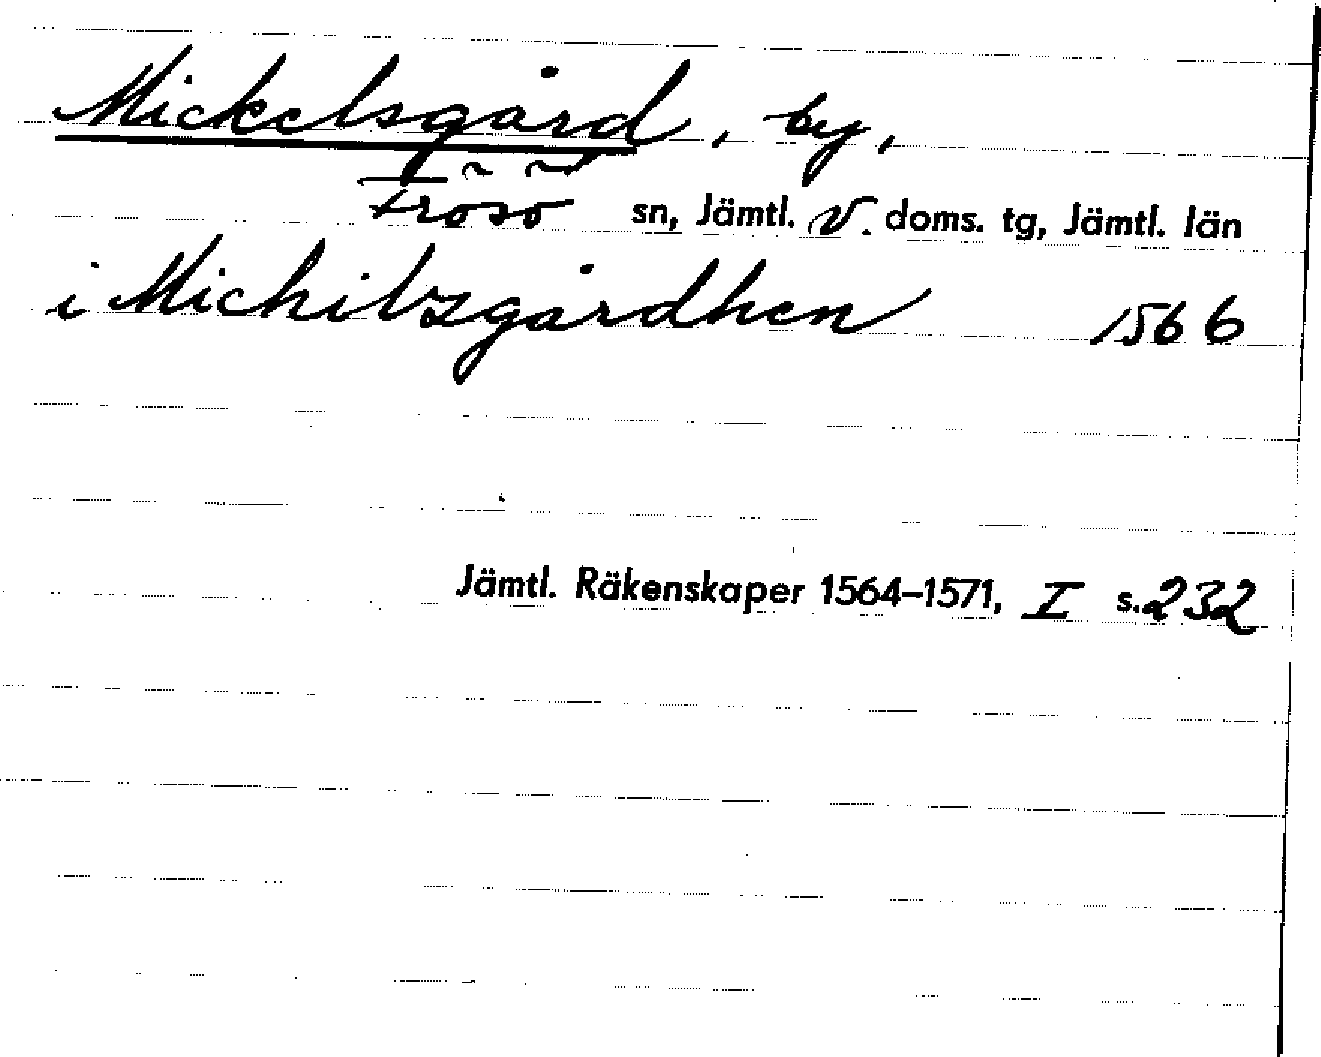 Mickelsgård, by,
Frösö sn, Jämtl. V. doms. tg, Jämtl. län
i Michilzgårdhen 1566
Jämtl. Räkenskaper 1564–1571, I s. 232